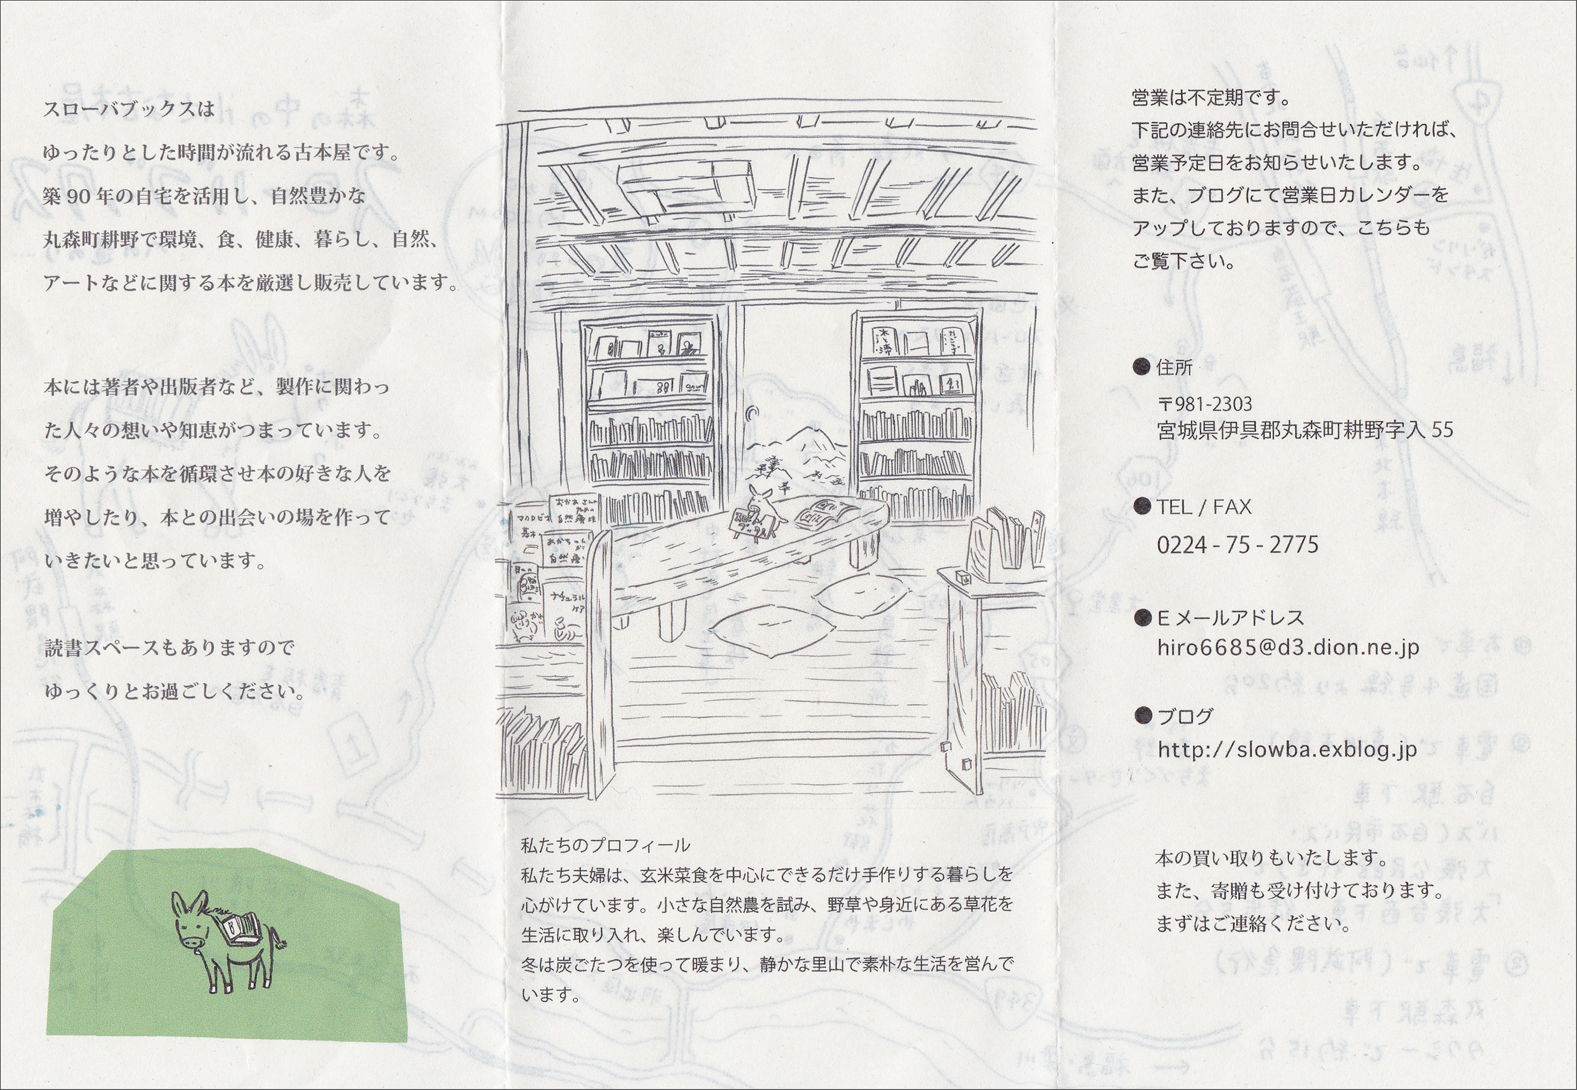 スローバブックスは
ゆったりとした時間が流れる古本屋です。
築 90 年の自宅を活用し、自然豊かな
丸森町耕野で環境、食、健康、暮らし、自然、
アートなどに関する本を厳選し販売しています。
本には著者や出版者など、製作に関わっ
た人々の想いや知恵がつまっています。
そのような本を循環させ本の好きな人を
増やしたり、本との出会いの場を作って
いきたいと思っています。
読書スペースもありますので
ゆっくりとお過ごしください。
おかあさんの
自然療法
マクロビオ
おかちゃん
自然療
ナチュラル
ケア
私たちのプロフィール
私たち夫婦は、玄米菜食を中心にできるだけ手作りする暮らしを
心がけています。小さな自然農を試み、野草や身近にある草花を
生活に取り入れ、楽しんでいます。
冬は炭ごたつを使って暖まり、静かな里山で素朴な生活を営んで
います。
営業は不定期です。
下記の連絡先にお問合せいただければ、
営業予定日をお知らせいたします。
また、ブログにて営業日カレンダーを
アップしておりますので、こちらも
ご覧下さい。
●住所
〒981-2303
宮城県伊具郡丸森町耕野字入 55
●TEL / FAX
0224 - 75 - 2775
●E メールアドレス
hiro6685@d3.dion.ne.jp
●ブログ
http://slowba.exblog.jp
本の買い取りもいたします。
また、寄贈も受け付けております。
まずはご連絡ください。